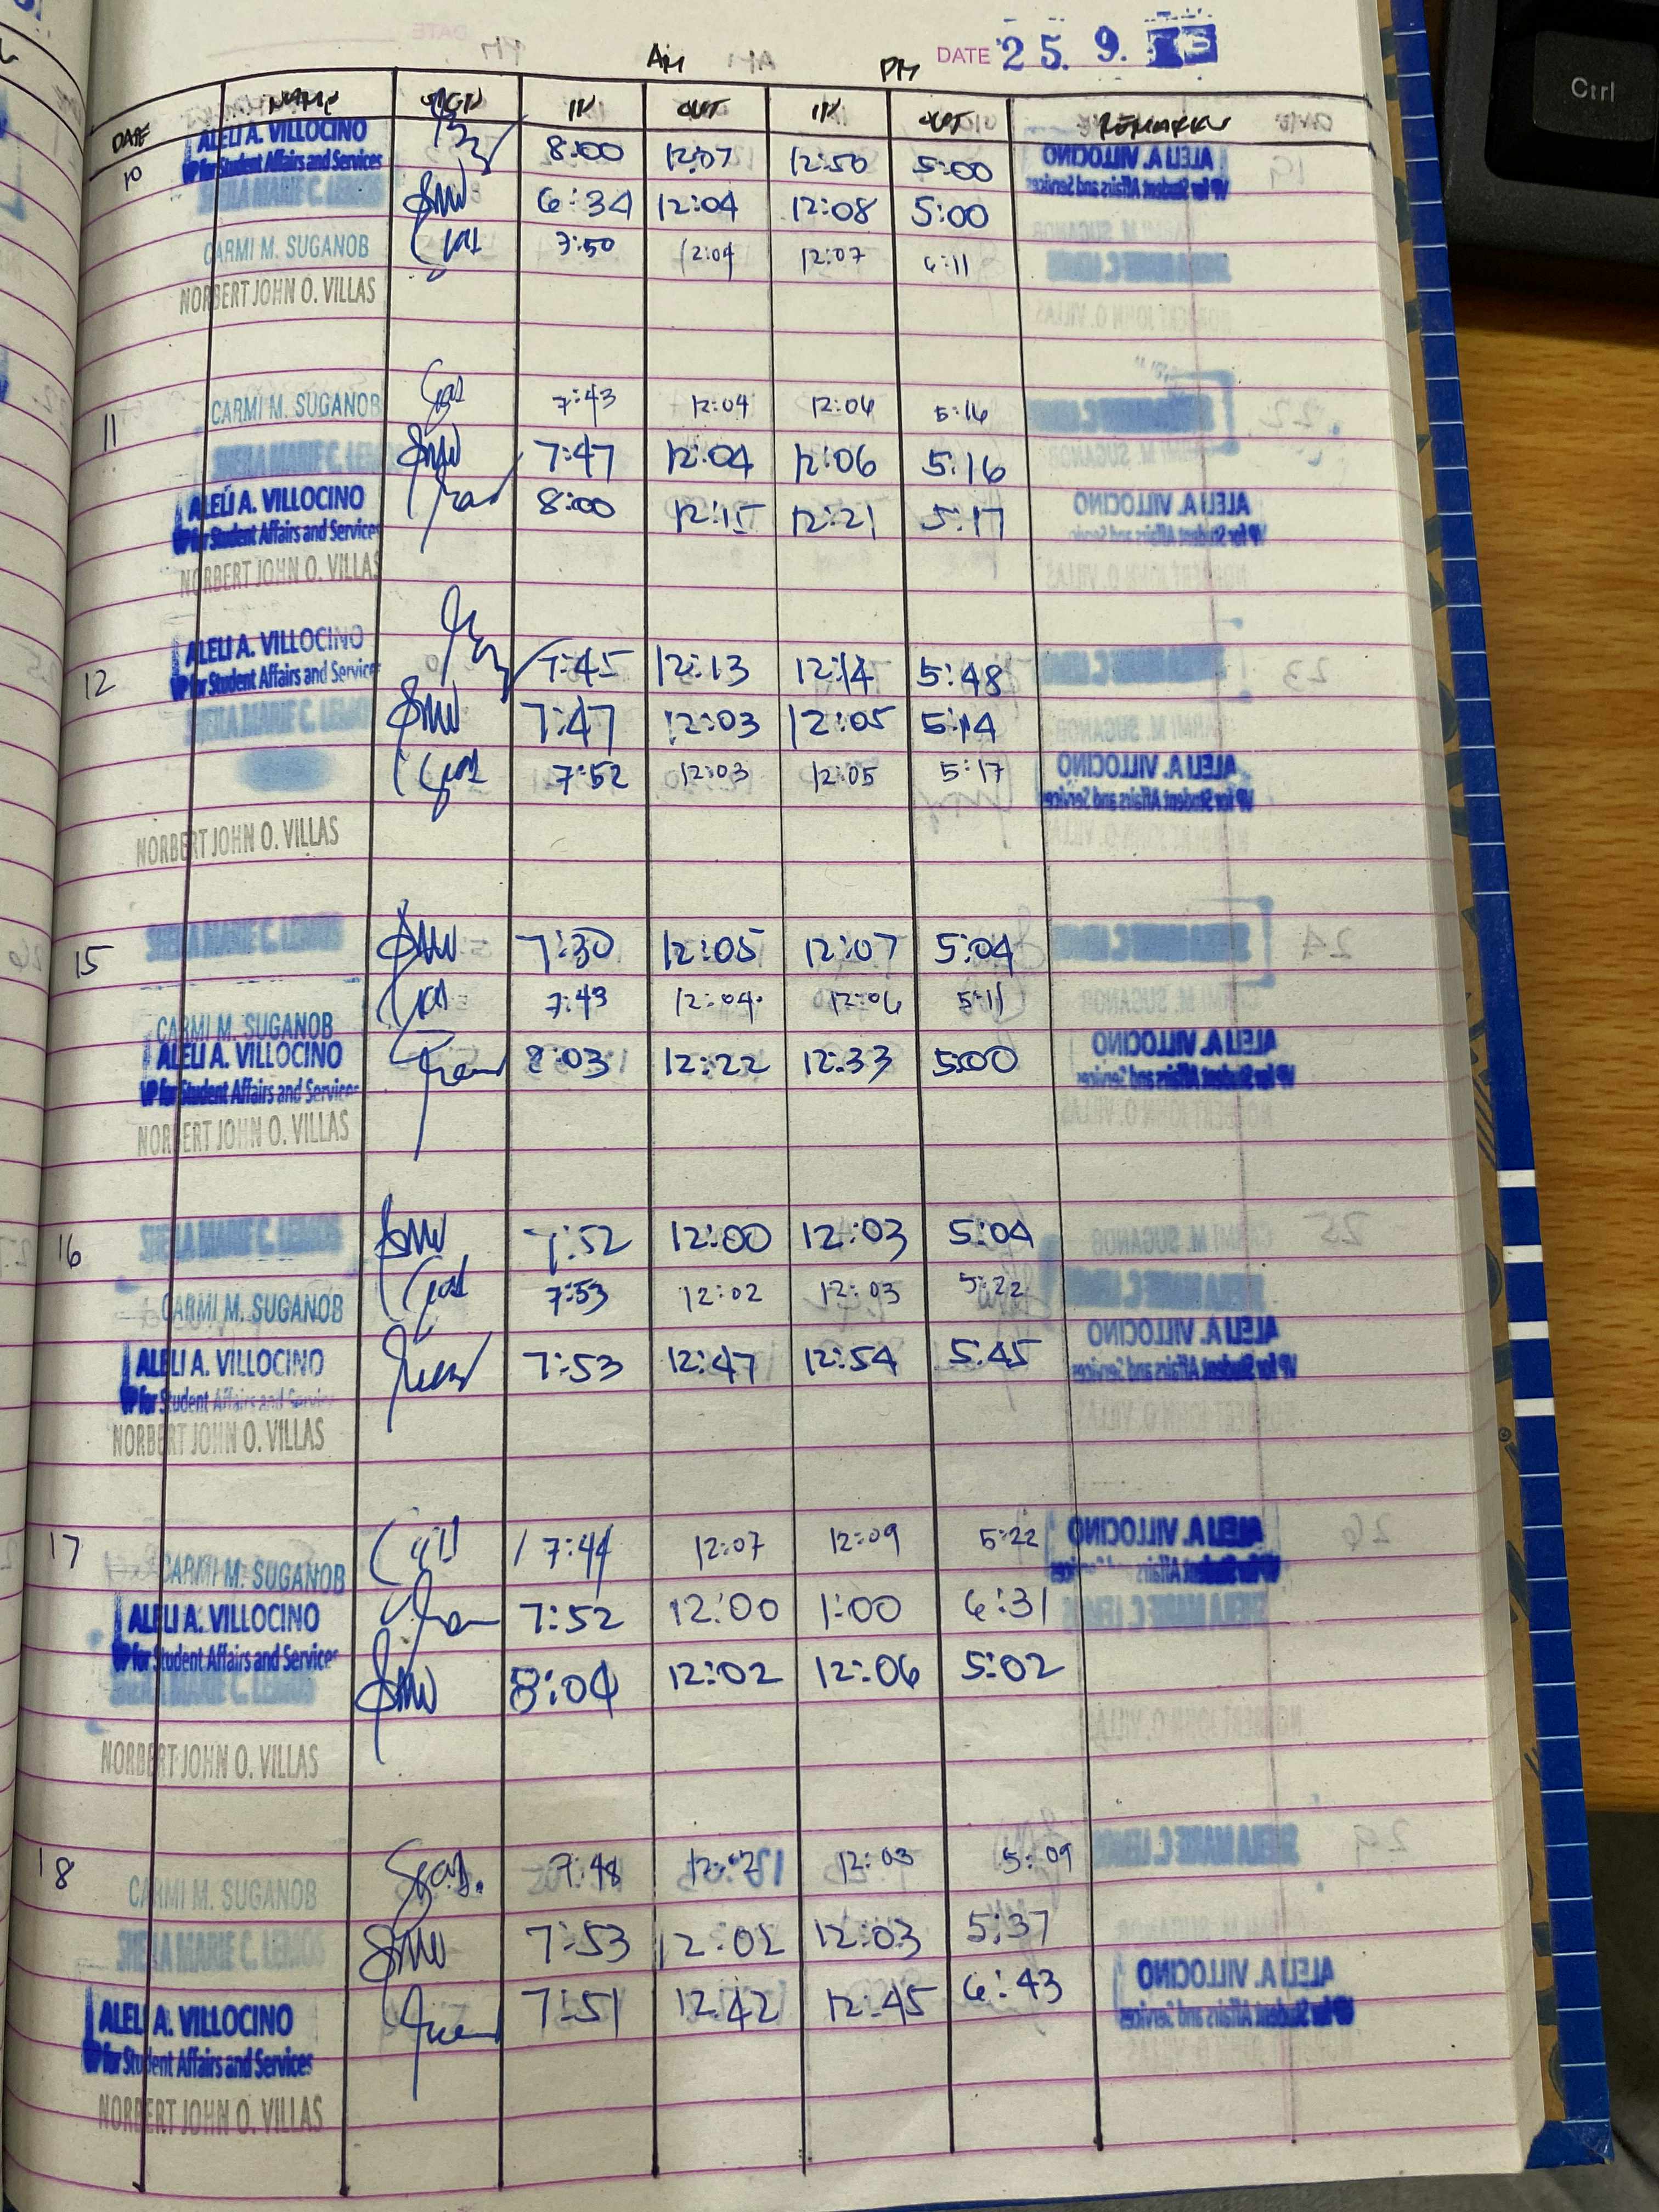 DATE 25. 9.
AM PM
DATE NAME SIGN IN OUT IN OUT REMARKS
10 ALELI A. VILLOCINO 8:00 12:07 12:50 5:00
VP for Student Affairs and Services
SHEILA MARIE C. 6:34 12:04 12:08 5:00
CARMI M. SUGANOB 7:50 12:04 12:07 6:11
NORBERT JOHN O. VILLAS
11 CARMI M. SUGANOB 7:43 12:04 12:06 5:16
MARIE C. 7:47 12:04 12:06 5:16
ALELI A. VILLOCINO 8:00 12:15 12:21 5:17
VP for Student Affairs and Services
NORBERT JOHN O. VILLAS
12 ALELI A. VILLOCINO 7:45 12:13 12:14 5:48
VP for Student Affairs and Services
MARIE C. 7:47 12:03 12:05 5:14
7:52 12:03 12:05 5:17
NORBERT JOHN O. VILLAS
15 MARIE C. 7:30 12:05 12:07 5:04
CARMI M. SUGANOB 7:43 12:04 12:06 5:11
ALELI A. VILLOCINO 8:03 12:22 12:33 5:00
VP for Student Affairs and Services
NORBERT JOHN O. VILLAS
16 MARIE C. 7:52 12:00 12:03 5:04
CARMI M. SUGANOB 7:53 12:02 12:03 5:22
ALELI A. VILLOCINO 7:53 12:47 12:54 5:45
VP for Student Affairs and Services
NORBERT JOHN O. VILLAS
17 CARMI M. SUGANOB 7:44 12:07 12:09 5:22
ALELI A. VILLOCINO 7:52 12:00 1:00 6:31
VP for Student Affairs and Services
MARIE C. 8:04 12:02 12:06 5:02
NORBERT JOHN O. VILLAS
18 CARMI M. SUGANOB 7:48 12:03 5:09
MARIE C. 7:53 12:02 12:03 5:37
ALELI A. VILLOCINO 7:51 12:42 12:45 6:43
VP for Student Affairs and Services
NORBERT JOHN O. VILLAS
Ctrl